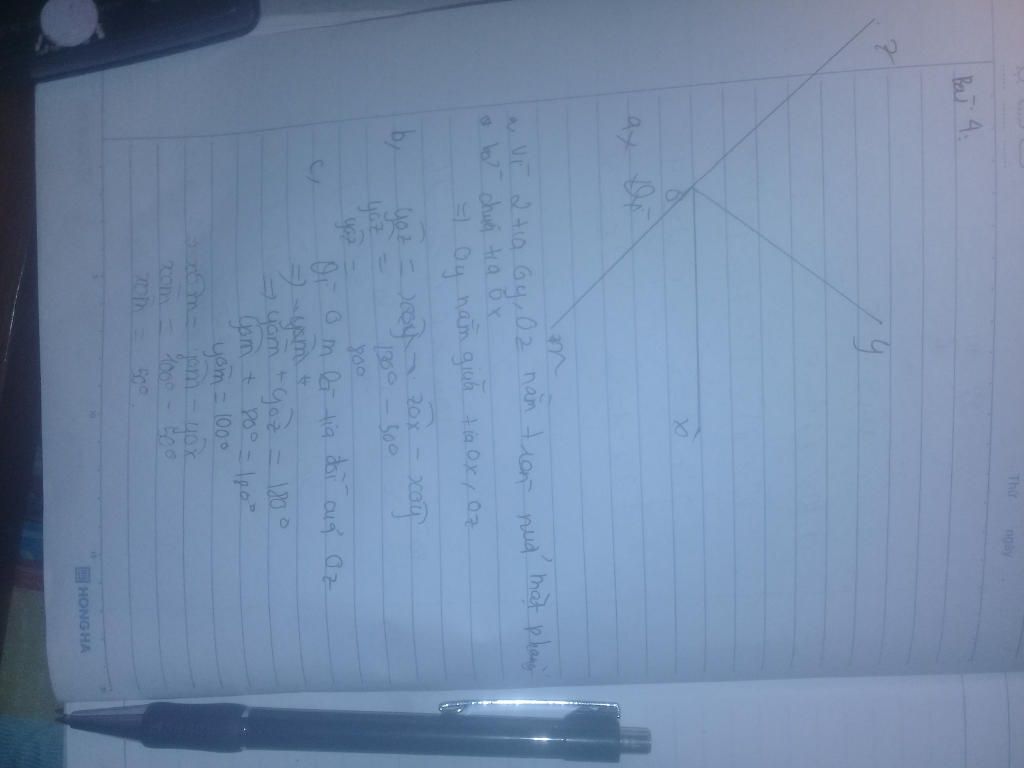 Thứ
ngày
Bài 4.
z
y
O
x
m
a, Vì
Vì 2 tia Oy, Oz nằm trên nửa mặt phẳng
bờ chứa tia Ox
=) Oy nằm giữa tia Ox, Oz
b,
yOz = zOx - xOy
yOz = 130° - 50°
yOz = 80°
c, Vì Om là tia đối của Oz
=) yOm +
=> yOm + yOz = 180°
yOm + 80° = 180°
yOm = 100°
xOm = yOm - yOx
xOm = 100° - 50°
xOm = 50°
HONG HA